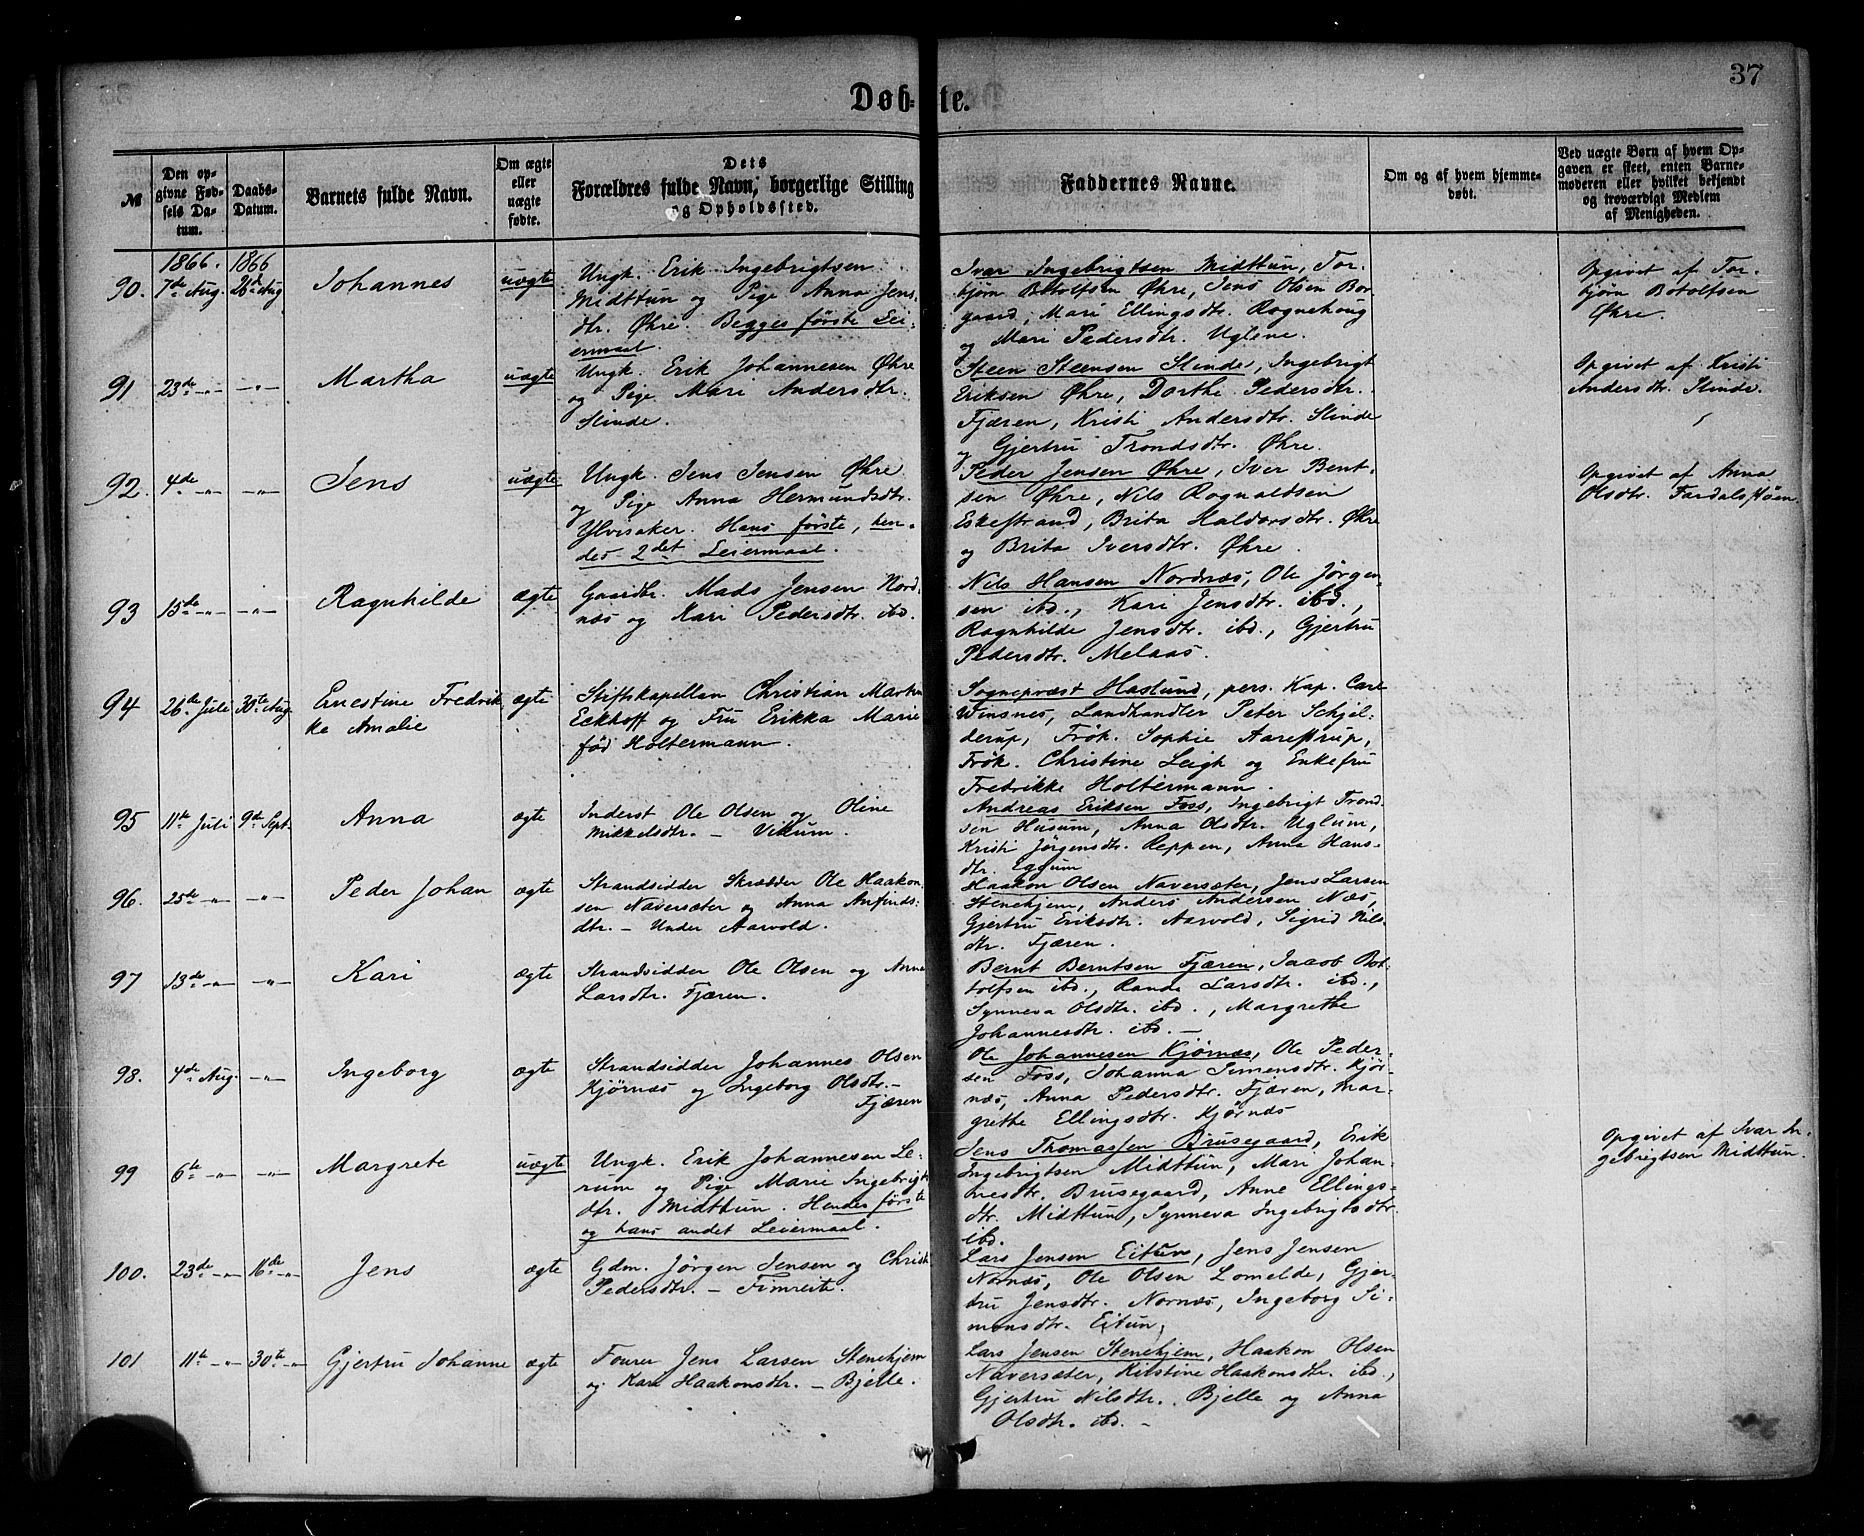 37
Døbte.
№
Den opgivne Fødsels Datum.
Daabs-Datum.
Barnets fulde Navn.
Om ægte eller uægte fødte.
Dets Forældres fulde Navn, borgerlige Stilling og Opholdssted.
Faddernes Navne.
Om og af hvem hjemmedøbt.
Ved uægte Børn af hvem Opgaven er skeet, enten Barnemoderen eller hvilket bekjendt og troværdigt Medlem af Menigheden.
1866. 1866
90. 7de Aug. 26de Aug Johannes uægte
Ungk. Erik Ingebrigtsen
Midttun og Pige Anna Jens-
dtr. Øhre. Begges første Lei-
ermaal.
Ivar Ingebrigtsen Midttun, Tor-
bjørn Botolfsen Øhre, Jens Olsen Bor-
gaard, Mari Ellingsdtr. Rognehoug
og Mari Pedersdtr. Uglene.
Opgivet af Tor-
bjørn Botolfsen
Øhre.
91 23de -"- -"- Martha uægte
Ungk. Erik Johannesen Øhre
og Pige Mari Andersdtr.
Slinde.
Steen Steensen Slinde, Ingebrigt
Eriksen Øhre, Dorthe Pedersdtr.
Fjæren, Kristi Andersdtr. Slinde
og Gjertru Trondsdtr. Øhre.
Opgivet af Kristi
Andersdtr. Slinde.
92. 4de -"- -"- Jens uægte
Ungk. Jens Jensen Øhre
og Pige Anna Hermundsdtr.
Ylvisaker. Hans første, hen-
des 2det Leiermaal.
Peder Jensen Øhre, Iver Bent-
sen Øhre, Nils Rognaldsen
Eskestrand, Brita Haldorsdtr. Øhre
og Brita Iversdtr. Øhre.
Opgivet af Anna
Olsdtr. Fardalsstøen.
93 15de -"- -"- Ragnhilde ægte
Gaardbr. Mads Jensen Nord-
næs og Kari Pedersdtr. ibd.
Nils Hansen Nordnæs, Ole Jørgen-
sen ibd., Kari Jensdtr. ibd.,
Ragnhilde Jensdtr. ibd., Gjertru
Pedersdtr. Melaas.
94 26de Juli 30te Aug. Ernestine Fredrik-
ke Amalie ægte
Stiftskapellan Christian Martin
Eckhoff og Fru Erikka Marie
fød Holtermann.
Sognepræst Haslund, pers. Kap. Carl
Winsnes, Landhandler Peter Schjel-
derup, Frøk. Sophie Aarestrup,
Frøk. Christine Leigh og Enkefru
Fredrikke Holtermann.
95 11te Juli 9de Sept. Anna ægte
Inderst Ole Olsen og Oline
Mikkelsdtr. - Vikum.
Andreas Eriksen Foss, Ingebrigt Trond-
sen Husum, Anna Olsdtr. Uglum,
Kristi Jørgensdtr. Reppen, Anna Hans-
dtr. Eggum
96. 25de -"- -"- Peder Johan ægte
Strandsidder Skrædder Ole Haakon-
sen Naversæter og Anna Anfinds-
dtr. - Under Aarvold.
Haakon Olsen Naversæter, Jens Larsen
Stenehjem, Anders Andersen Næs,
Gjertru Eriksdtr. Aarvold, Sigrid Nils-
dtr. Fjæren.
97 13de -"- -"- Kari ægte
Strandsidder Ole Olsen og Anna
Larsdtr. Fjæren.
Bernt Berntsen Fjæren, Jacob Bot-
tolfsen ibd., Rande Larsdtr. ibd.,
Synneva Olsdtr. ibd., Margrethe
Johannesdtr. ibd. -
98. 4de Aug. -"- Ingeborg ægte
Strandsidder Johannes Olsen
Kjørnæs og Ingeborg Olsdtr. -
Fjæren
Ole Johannesen Kjørnæs, Ole Peder-
sen Foss, Johanna Simensdtr. Kjør-
næs, Anna Pedersdtr. Fjæren, Mar-
grethe Ellingsdtr. Kjørnæs
99 6te -"- -"- Margrete uægte
Ungk. Erik Johannesen Le-
rum og Pige Marie Ingebrigts-
dtr. Midttun. Hendes første
og hans andet Leiermaal.
Jens Thomassen Brusegaard, Erik
Ingebrigtsen Midttun, Mari Johan-
nesdtr. Brusegaard, Anne Ellings-
dtr. Midttun, Synneva Ingebrigtsdtr.
ibd.
Opgivet af Ivar In-
gebrigtsen Midttun.
100. 23de -"- 16de -"- Jens ægte
Gdm. Jørgen Jensen og Christi
Pedersdtr. - Fimreite.
Lars Jensen Eitun, Jens Jensen
Nornæs, Ole Olsen Lomelde, Gjer-
tru Jensdtr. Nornæs, Ingeborg Si-
monsdtr. Eitun,
101 11te -"- 30te -"- Gjertru Johanne ægte
Fourer Jens Larsen Stenehjem
og Kari Haakonsdtr. - Bjelle.
Lars Jensen Stenehjem, Haakon Olsen
Naversæter, Kirstine Haakonsdtr. ibd.,
Gjertru Nilsdtr. Bjelle og Anna
Olsdtr. ibd. -